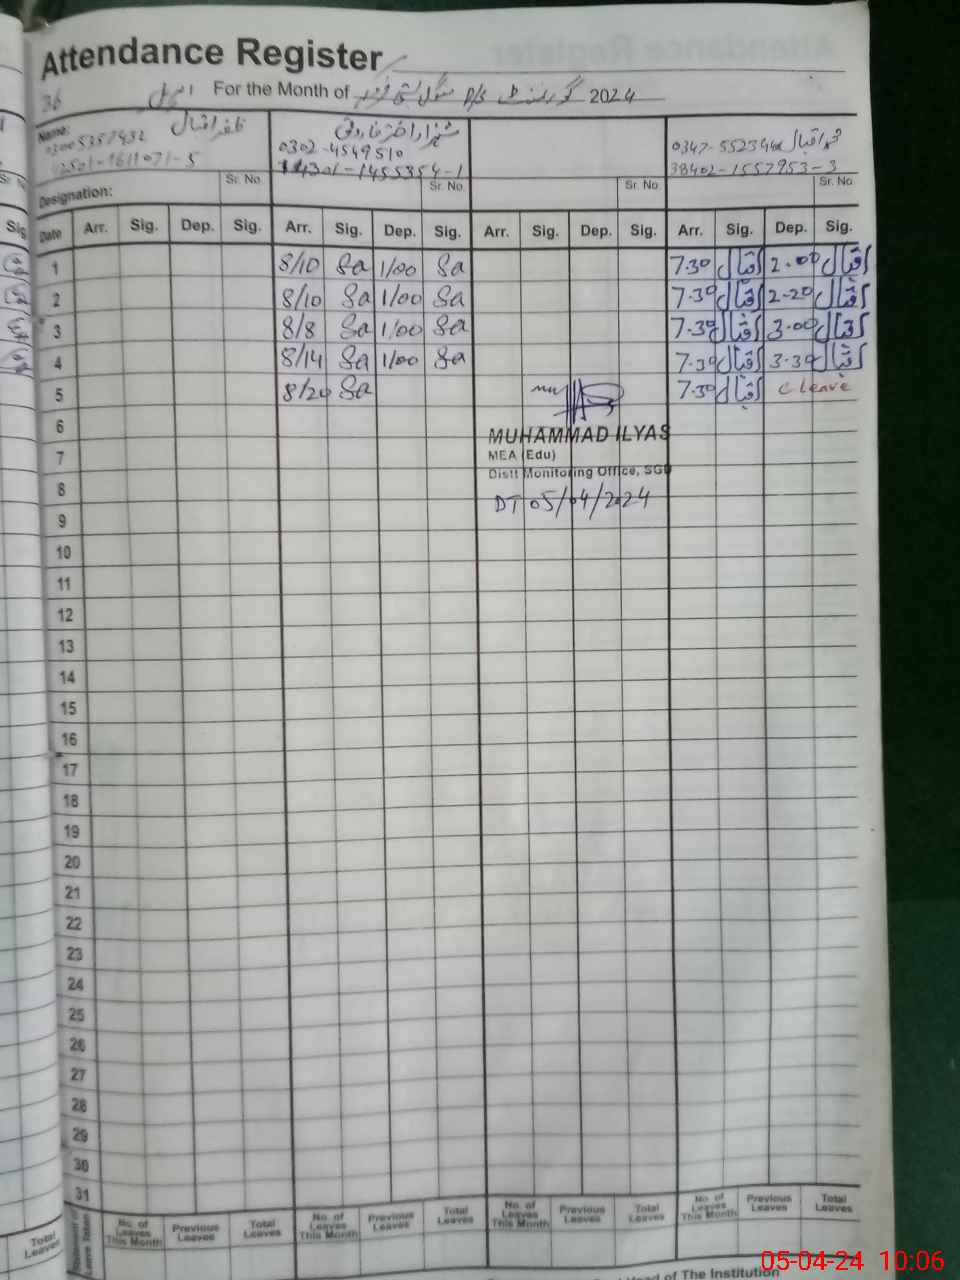 Attendance Register
36 اپریل For the Month of 2024
Name: ظفر اقبال
03005357432
شہزاد اختر فاروق
0302-4549510
14301-1455354-1
محمد اقبال 0347-552344
38402-1557953-3
Designation: Sr. No. Sr. No. Sr. No. Sr. No.
Date Arr. Sig. Dep. Sig. Arr. Sig. Dep. Sig. Arr. Sig. Dep. Sig. Arr. Sig. Dep. Sig.
1 8/10 Sa 1/00 Sa 7.30 اقبال 2.00 اقبال
2 8/10 Sa 1/00 Sa 7.30 اقبال 2-20 اقبال
3 8/8 Sa 1/00 Sa 7.30 اقبال 3.00 اقبال
4 8/14 Sa 1/00 Sa 7.30 اقبال 3.30 اقبال
5 8/20 Sa 7.30 اقبال c Leave
6 MUHAMMAD ILYAS
7 MEA (Edu)
Distt Monitoring Office, SGD
8 DT 05/04/2024
9
10
11
12
13
14
15
16
17
18
19
20
21
22
23
24
25
26
27
28
29
30
31
No. of Leaves This Month Previous Leaves Total Leaves No. of Leaves This Month Previous Leaves Total Leaves No. of Leaves This Month Previous Leaves Total Leaves No. of Leaves This Month Previous Leaves Total Leaves
Total Leaves
Head of The Institution
05-04-24 10:06